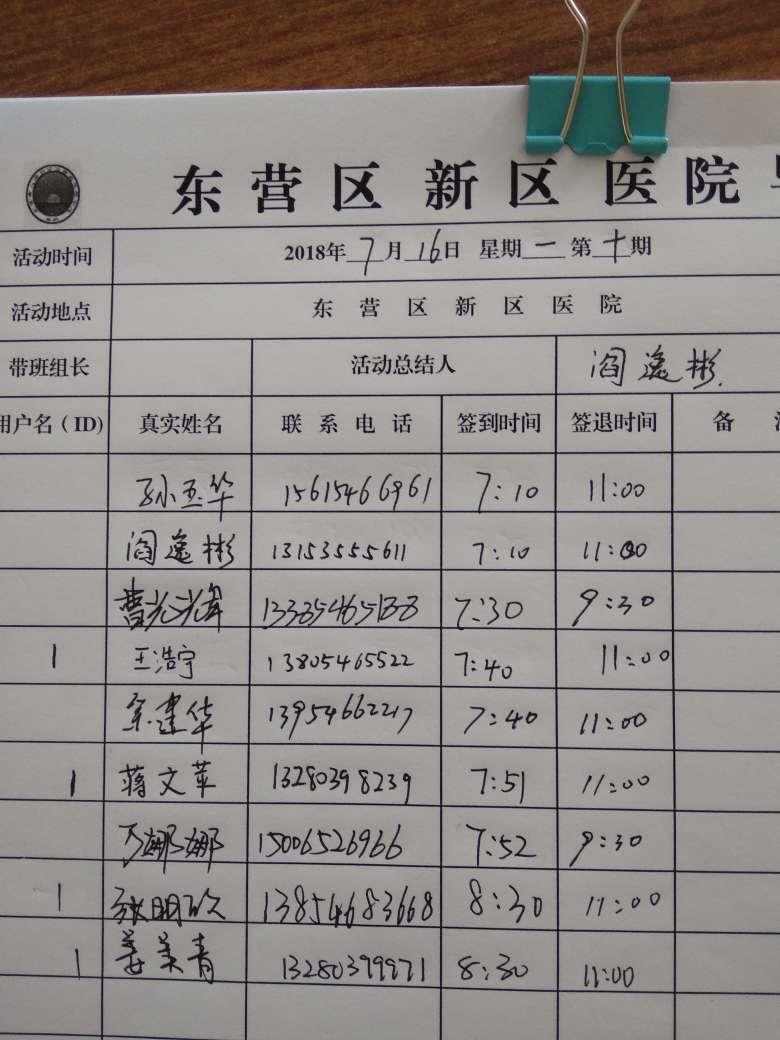 东营区新区医院
活动时间 2018年7月16日 星期一 第十期
活动地点 东营区新区医院
带班组长 活动总结人 阎逸彬
用户名（ID) 真实姓名 联系电话 签到时间 签退时间 备
孙玉华 15615466961 7:10 11:00
阎逸彬 13153555611 7:10 11:00
曹光辉 7:30 9:30
1 王浩宇 13805465522 7:40 11:00
建华 13954662217 7:40 11:00
1 蒋文苹 13280398239 7:51 11:00
娜娜 15006526966 7:52 9:30
1 张明 13854683668 8:30 11:00
1 姜美青 13280399971 8:30 11:00